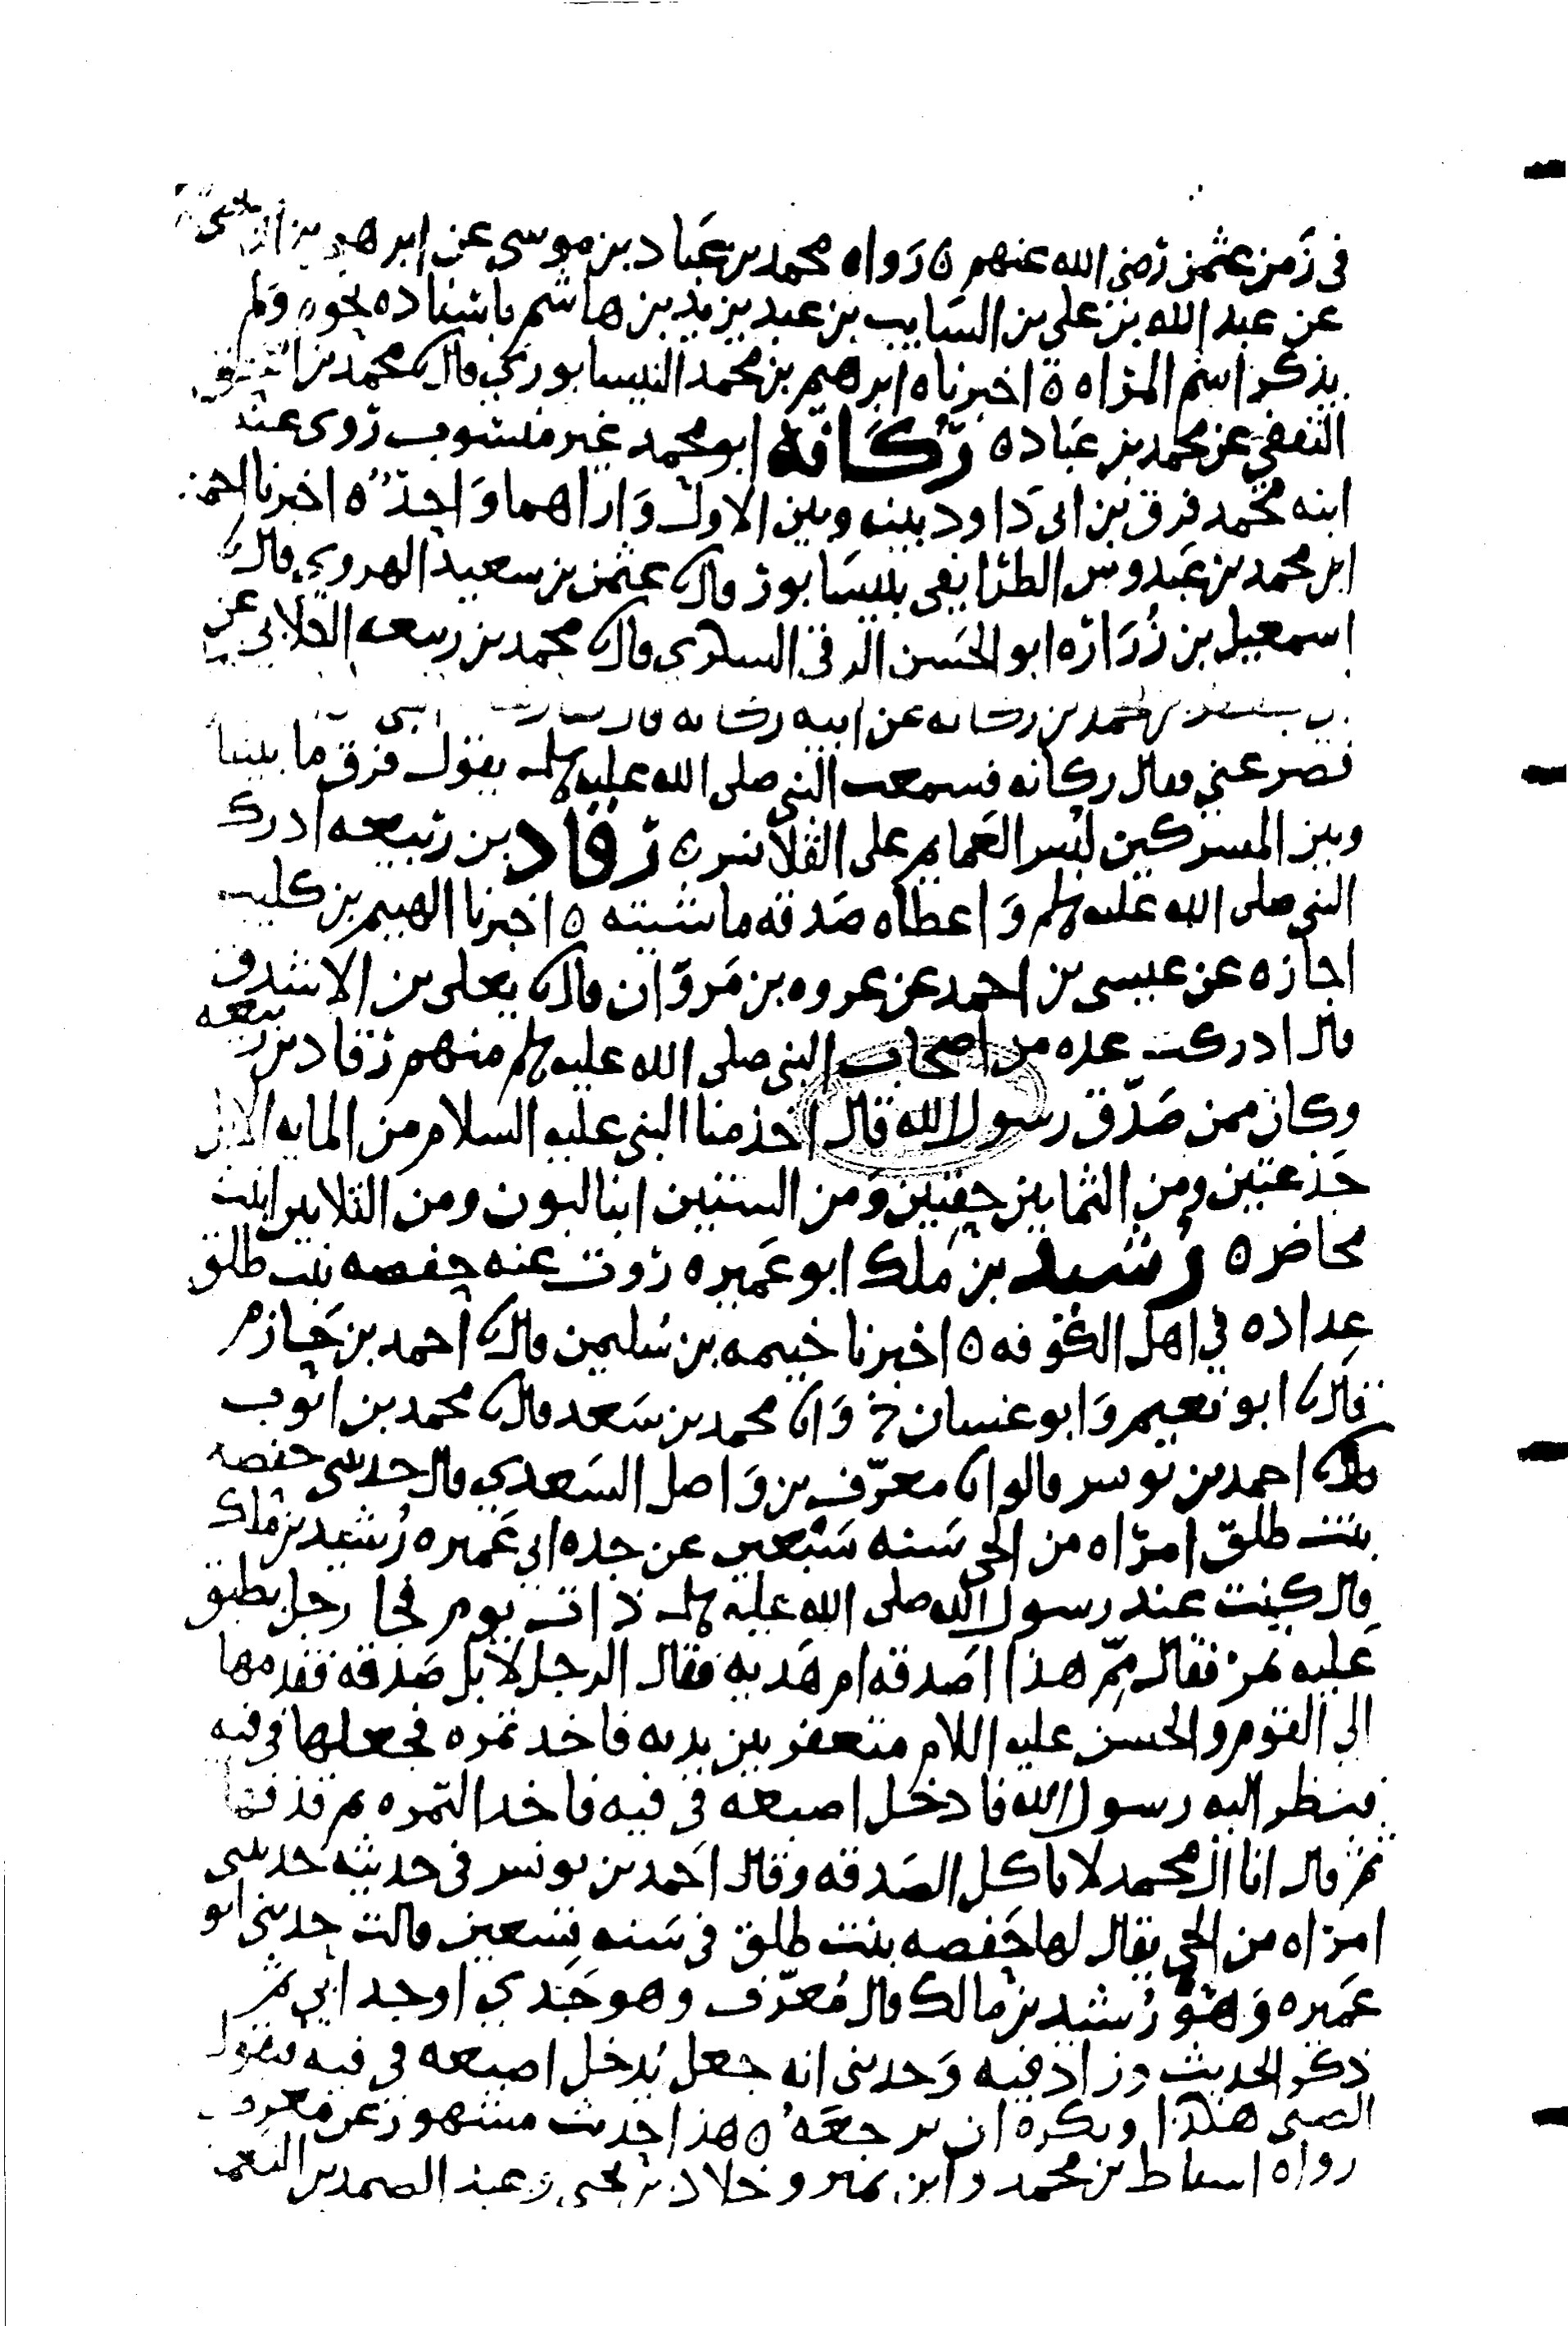 في زمن عثمن رضي الله عنهم ه رواه محمد بن عباد بن موسى عن ابرهيم بن
عن عبد الله بن علي بن السايب بن عبد يزيد بن هاشم باسناده نحوه ولم
يذكر اسم المراه ه اخبرناه ابرهيم بن محمد النيسابوري قال محمد بن اسحق
الثقفي عن محمد بن عباد ه ركانة ابو محمد غير منسوب روى عنه
ابنه محمد فرق بن ابي داود بينه وبين الاول واراهما واحد ه اخبرنا احمد
ابن محمد بن عبدوس الطرايفي بنيسابور قال عثمن بن سعيد الهروي قال
اسمعيل بن زراره ابو الحسن الرقي السكري قال محمد بن ربيعه الكلابي عن
محمد بن ركانه عن ابيه ركانه قال
فصرعني وقال ركانه فسمعت النبي صلى الله عليه وسلم يقول فرق ما بيننا
وبين المشركين لبس العمايم على القلانس ه رقاد بن ربيعه ادرك
النبي صلى الله عليه وسلم واعطاه صدقه ماشيته ه اخبرنا الهيثم بن كليب
اجازه عن عيسى بن احمد عن عروه بن مروان قال يعلى بن الاشدق
قال ادركت عده من اصحاب النبي صلى الله عليه وسلم منهم رقاد بن ربيعه
وكان ممن صدق رسول الله قال اخذ منا النبي عليه السلام من المايه الابل
جذعتين ومن الثمانين حقتين ومن الستين ابنا لبون ومن الثلاثين ابنت
مخاض ه رشيد بن ملك ابو عميره روت عنه حفصه بنت طلق
عداده في اهل الكوفه ه اخبرنا خيثمه بن سليمن قال احمد بن حازم
قال ابو نعيم وابو غسان ح وانا محمد بن سعد قال محمد بن ايوب
قال احمد بن يونس قالوا نا معرف بن واصل السعدي قال حدثتني حفصه
بنت طلق امراه من الحي سنه سبعين عن جده ابي عميره رشيد بن ملك
قال كنت عند رسول الله صلى الله عليه وسلم ذات يوم فجا رجل بطبق
عليه تمر فقال مم هذا اصدقه ام هديه فقال الرجل لا بل صدقه فقدمها
الى القوم والحسن عليه السلام متعفر بين يديه فاخذ تمره فجعلها في فيه
فنظر اليه رسول الله فادخل اصبعه في فيه فاخذ التمره ثم قذفها
ثم قال انا ال محمد لا ناكل الصدقه وقال احمد بن يونس في حديثه حدثتني
امراه من الحي يقال لها حفصه بنت طلق في سنه تسعين قالت حدثني ابو
عميره وهو رشيد بن مالك قال معرف وهو جدي او جد ابي ثم
ذكر الحديث وزاد فيه وحدثني انه جعل يدخل اصبعه في فيه فيقول
الصبي هكذا ويكره ان يوجعه ه هذا حديث مشهور عن معرف
رواه اسباط بن محمد وابن نمير وخلاد بن يحيى وعبد الصمد بن النعمن